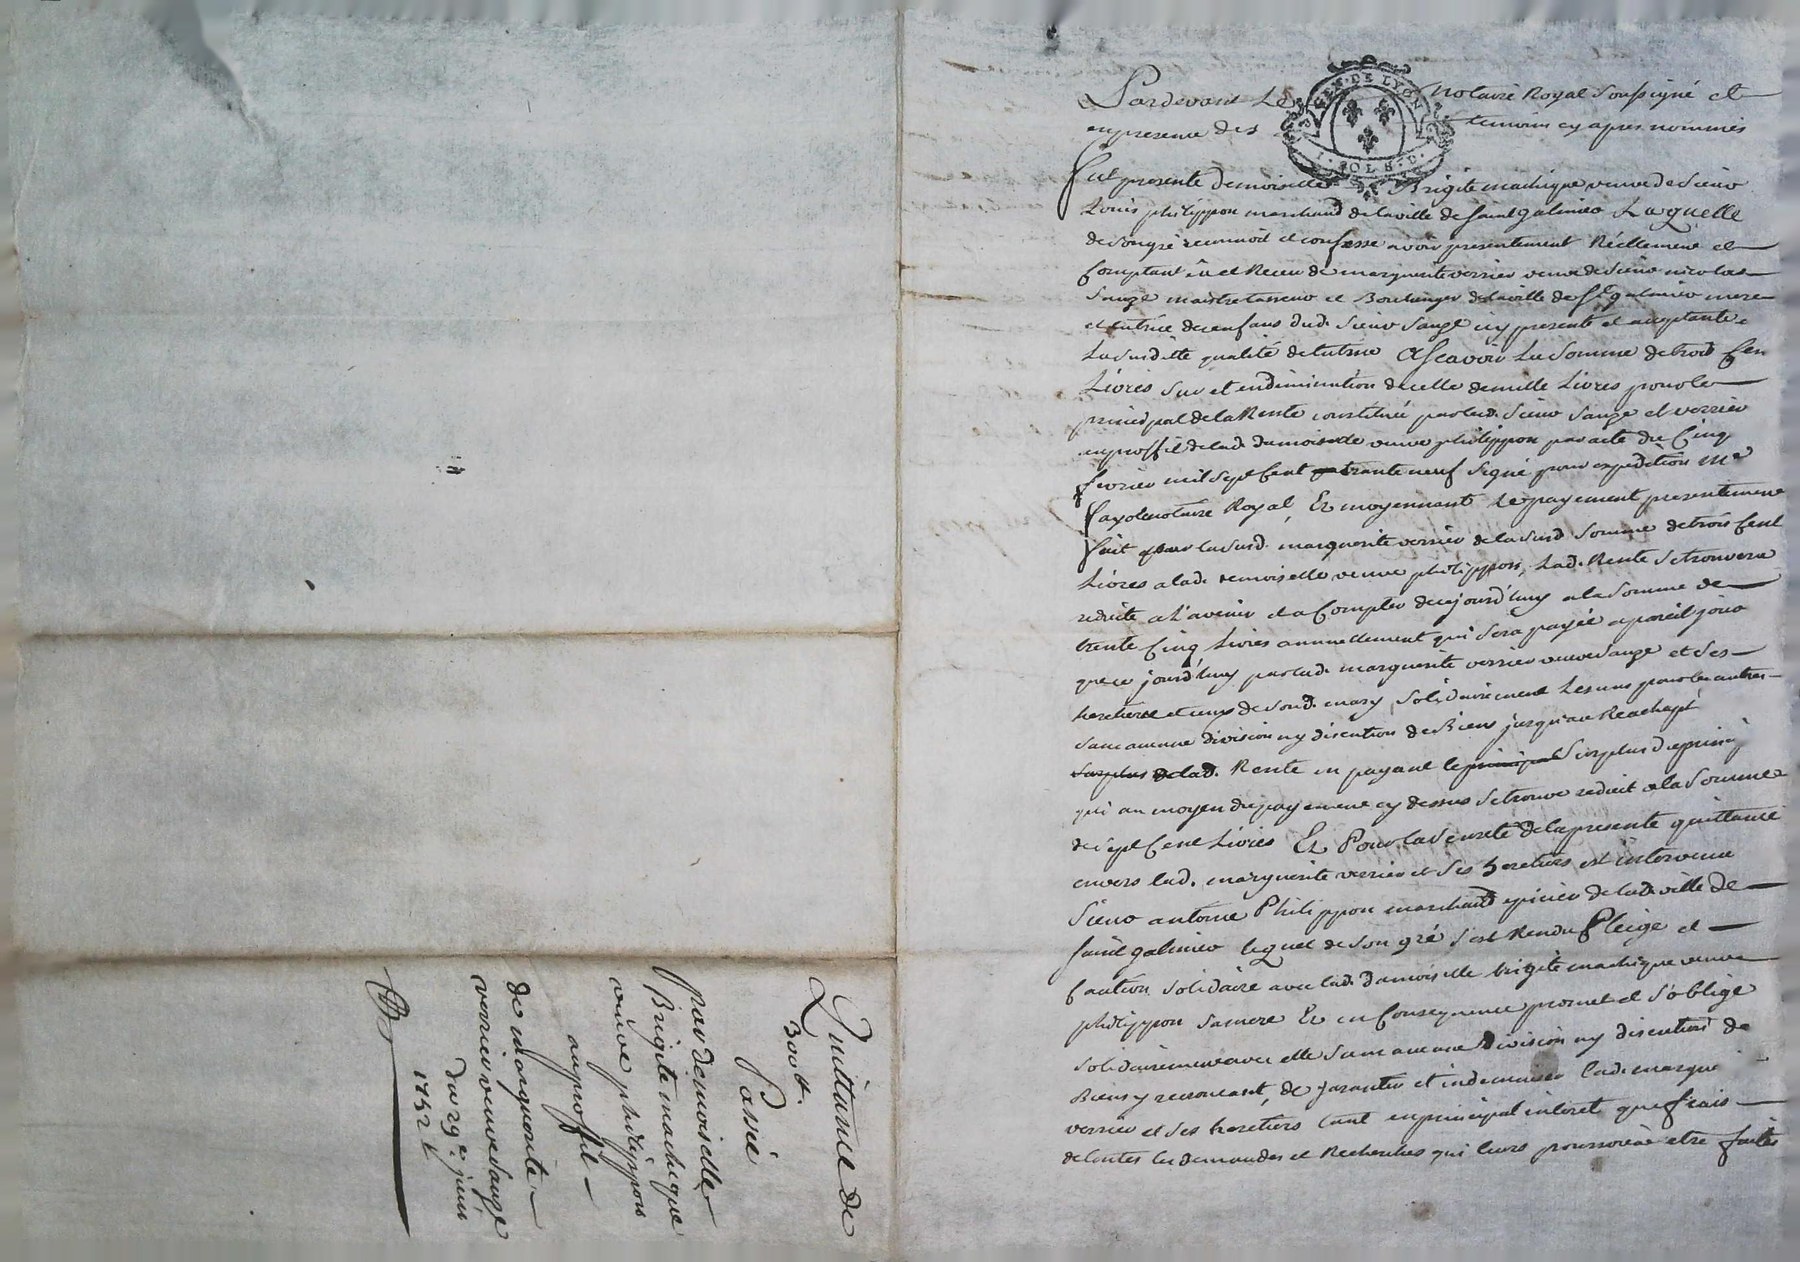 Pardevant Le notaire Royal Soussigné et
en presence des temoins cy apres nommés
fut presente demoiselle Brigite machique veuve de Sieur
Louis philippon marchand de la ville de saint galmier Laquelle
de Songré reconnoit et confesse avoir presentement Réellement et
Comptant eu et Receu de marguerite verrier veuve de Sieur nicolas
Sauze maistre tasseur et Boulanger de la ville de st galmier mere
et tutrice des enfans dud. Sieur Sauze icy presente et acceptante
La Susditte qualité de tutrice Ascavoir La Somme de trois Cen
Livres Sur et en diminution de celle de mille Livres pour le
principal de la Rente constituée par led. Sieur Sauze et verrier
au proffit de lad. damoiselle veuve philippon par acte du Cinq
fevrier mil Sept Cent trante neuf Signé pour expedition me
notaire Royal, Et moyennant Le payement presentement
fait par la Susd. marguerite verrier de la Susd Somme de trois Cent
Livres a lad. demoiselle veuve philippon, Lad. Rente Setrouvera
reduite a L'avenir et a Compter de cejourd'huy a la Somme de
trente Cinq Livres annuellement qui Sera payée a pareil jour
que ce jourd'huy par lad. marguerite verrier veuve Sauze et Ses
heretiers et ceux de Sond. mary, Solidairement Les uns pour les autres
Sans aucune division ny discution de Biens jusqu'au Reachapt
Surplus de lad. Rente en payant le principal Surplus du princi
qui au moyen du payement cy dessus Setrouve reduit a la Somme
de Sept Cent Livres Et Pour la Seureté de la presente quittance
envers lad. marguerite verrier et Ses heretiers est intervenu
Sieur antoine Philippon marchand epicier de lad. ville de
saint galmier Lequel de Son gré S'est Rendu Pleige et
Caution Solidaire avec lad. damoiselle brigite machique veuve
philippon Samere Et en Consequence promet et S'oblige
Solidairement avec elle Sans aucune division ny discution de
Biens y renoncant, de garantir et indemniser lad. margui
verrier et Ses heretiers tant en principal interet que frais
de toutes les demandes et Recherches qui leurs pourroient etre faites
Quittance de
300 tt.
Passée
par demoiselle
Brigite machique
veuve philippon
au proffit
de marguerite
verrier veuve Sauze
du 29e juin
1752
GEN. DE LYON